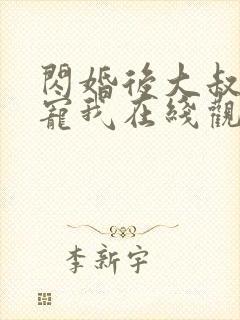 閃婚後大叔
寵我在綫觀
李新宇